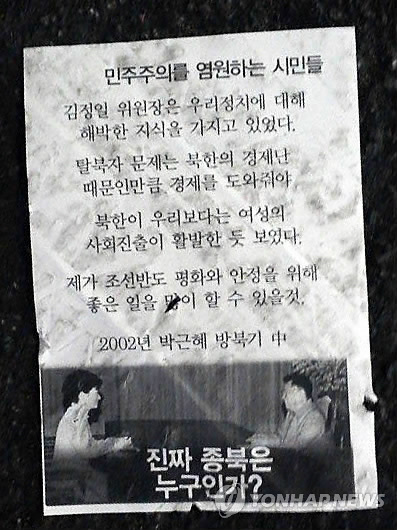 민주주의를 염원하는 시민들
김정일 위원장은 우리정치에 대해
해박한 지식을 가지고 있었다.
탈북자 문제는 북한의 경제난
때문인만큼 경제를 도와줘야
북한이 우리보다는 여성의
사회진출이 활발한 듯 보였다.
제가 조선반도 평화와 안정을 위해
좋은 일을 많이 할 수 있을것.
2002년 박근혜 방북기 中
진짜 종북은
누구인가?
YONHAPNEWS